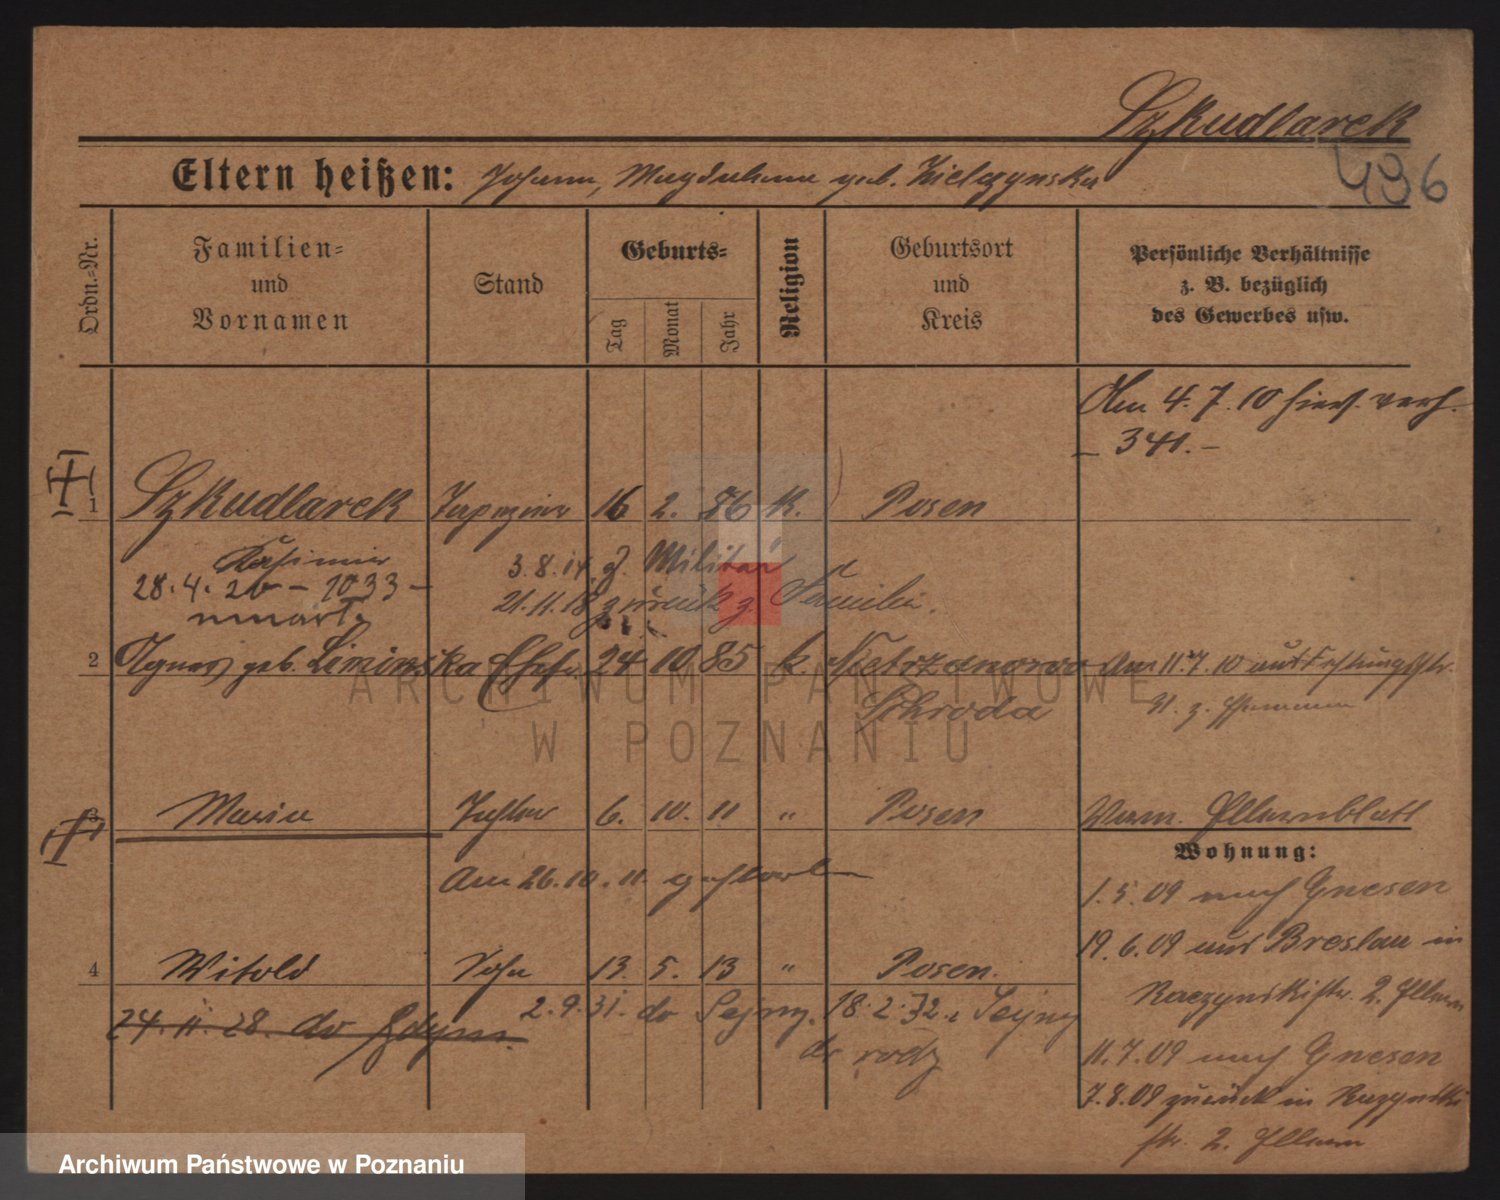 Szkudlarek
496
Eltern heißen: Johann, Magdalena geb. Zielezynska
Ordn.-Nr.
Familien-
und
Vornamen
Stand
Geburts-
Tag
Monat
Jahr
Religion
Geburtsort
und
Kreis
Persönliche Verhältnisse
z. B. bezüglich
des Gewerbes usw.
Am 4.7.10 hier verh.
– 341. –
1 Szkudlarek Tapezierer 16 2. 86 k. Posen
Kasimir 3.8.14 z. Militär
28.4.20 – 1033 –
21.11.18 zurück z. Familie.
2 Agnes geb. Siminska Ehefr. 24 10 85 k. Am 11.7.10 aus
Schroda
3 Maria Tochter 6. 10. 11 " Posen
Am 26.10.11. gestorben
Wohnung:
1.5.09 nach Gnesen
19.6.09 aus Breslau in
Raczynskistr. 2. Eltern
4 Witold Sohn 13. 5. 13 " Posen.
24.11.28. do Gdyni.
2.9.31. do Sejny. 18.2.32. z Sejny
do rodz
11.7.09 nach Gnesen
7.8.09 zurück in Raczynski
str. 2. Eltern
ARCHIWUM PAŃSTWOWE
W POZNANIU
Archiwum Państwowe w Poznaniu